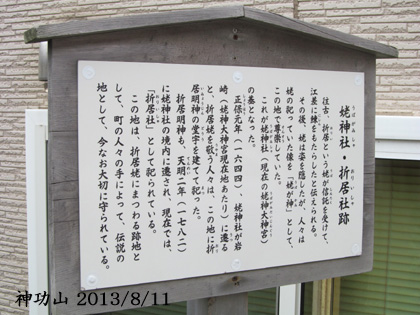 姥神社・折居社跡
うばがみしゃ
おりいしゃ
往古、折居という姥が信託を受けて、
江差に鰊をもたらしたと伝えられる。
その後、姥は姿を隠したが、人々は
姥の祀っていた像を「姥が神」として、
この地で尊崇していた。
これが姥神社（現在の姥神大神宮）
の基となった。
正保元年（一六四四）、姥神社が岩
崎（姥神大神宮現在地あたり）に遷る
と、折居姥を敬う人々は、この地に折
居明神の堂宇を建てて祀った。
折居明神も、天明二年（一七八二）
に姥神社の境内に遷され、現在では、
「折居社」として祀られている。
この地は、折居姥にまつわる跡地と
して、町の人々の手によって、伝説の
地として、今なお大切に守られている。
神功山 2013/8/11